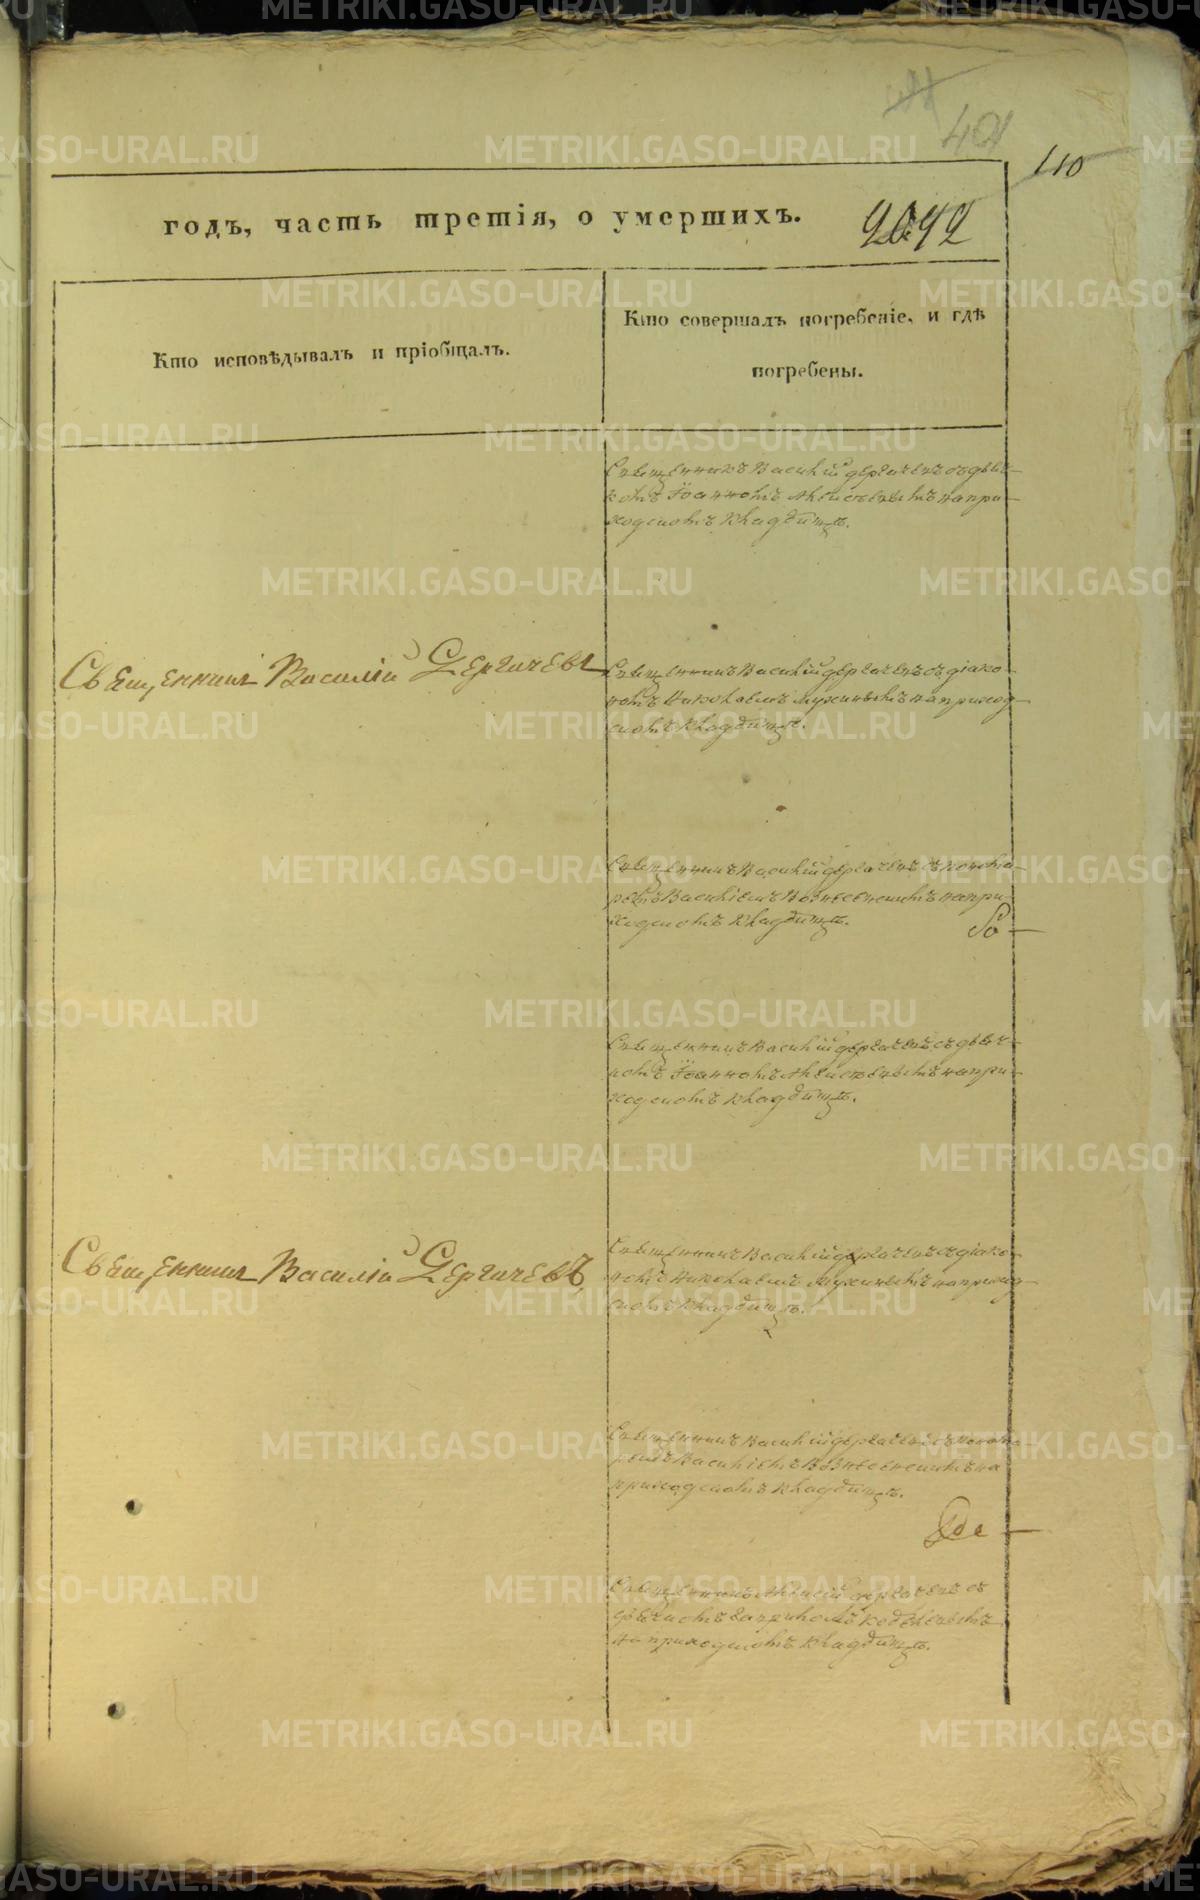 401
110
годъ, часть третія, о умершихъ.
Кто исповѣдывалъ и пріобщалъ.
Кто совершалъ погребеніе, и гдѣ
погребены.
Священникъ Василій Дергачевъ съ дьяч-
комъ Іоанномъ на при-
ходскомъ кладбищѣ.
Священникъ Василій Дергачевъ
Священникъ Василій Дергачевъ съ діако-
номъ Николаемъ Мухинымъ на приход-
скомъ кладбищѣ.
Священникъ Василій Дергачевъ съ понома-
ремъ Василіемъ Вознесенскимъ на при-
ходскомъ кладбищѣ.
Священникъ Василій Дергачевъ съ дьяч-
комъ Іоанномъ на при-
ходскомъ кладбищѣ.
Священникъ Василій Дергачевъ
Священникъ Василій Дергачевъ съ діако-
номъ Николаемъ Мухинымъ на приход-
скомъ кладбищѣ.
Священникъ Василій Дергачевъ съ понома-
ремъ Василіемъ Вознесенскимъ на
приходскомъ кладбищѣ.
Священникъ Алексій Дергачевъ съ
дьячкомъ
на приходскомъ кладбищѣ.
METRIKI.GASO-URAL.RU